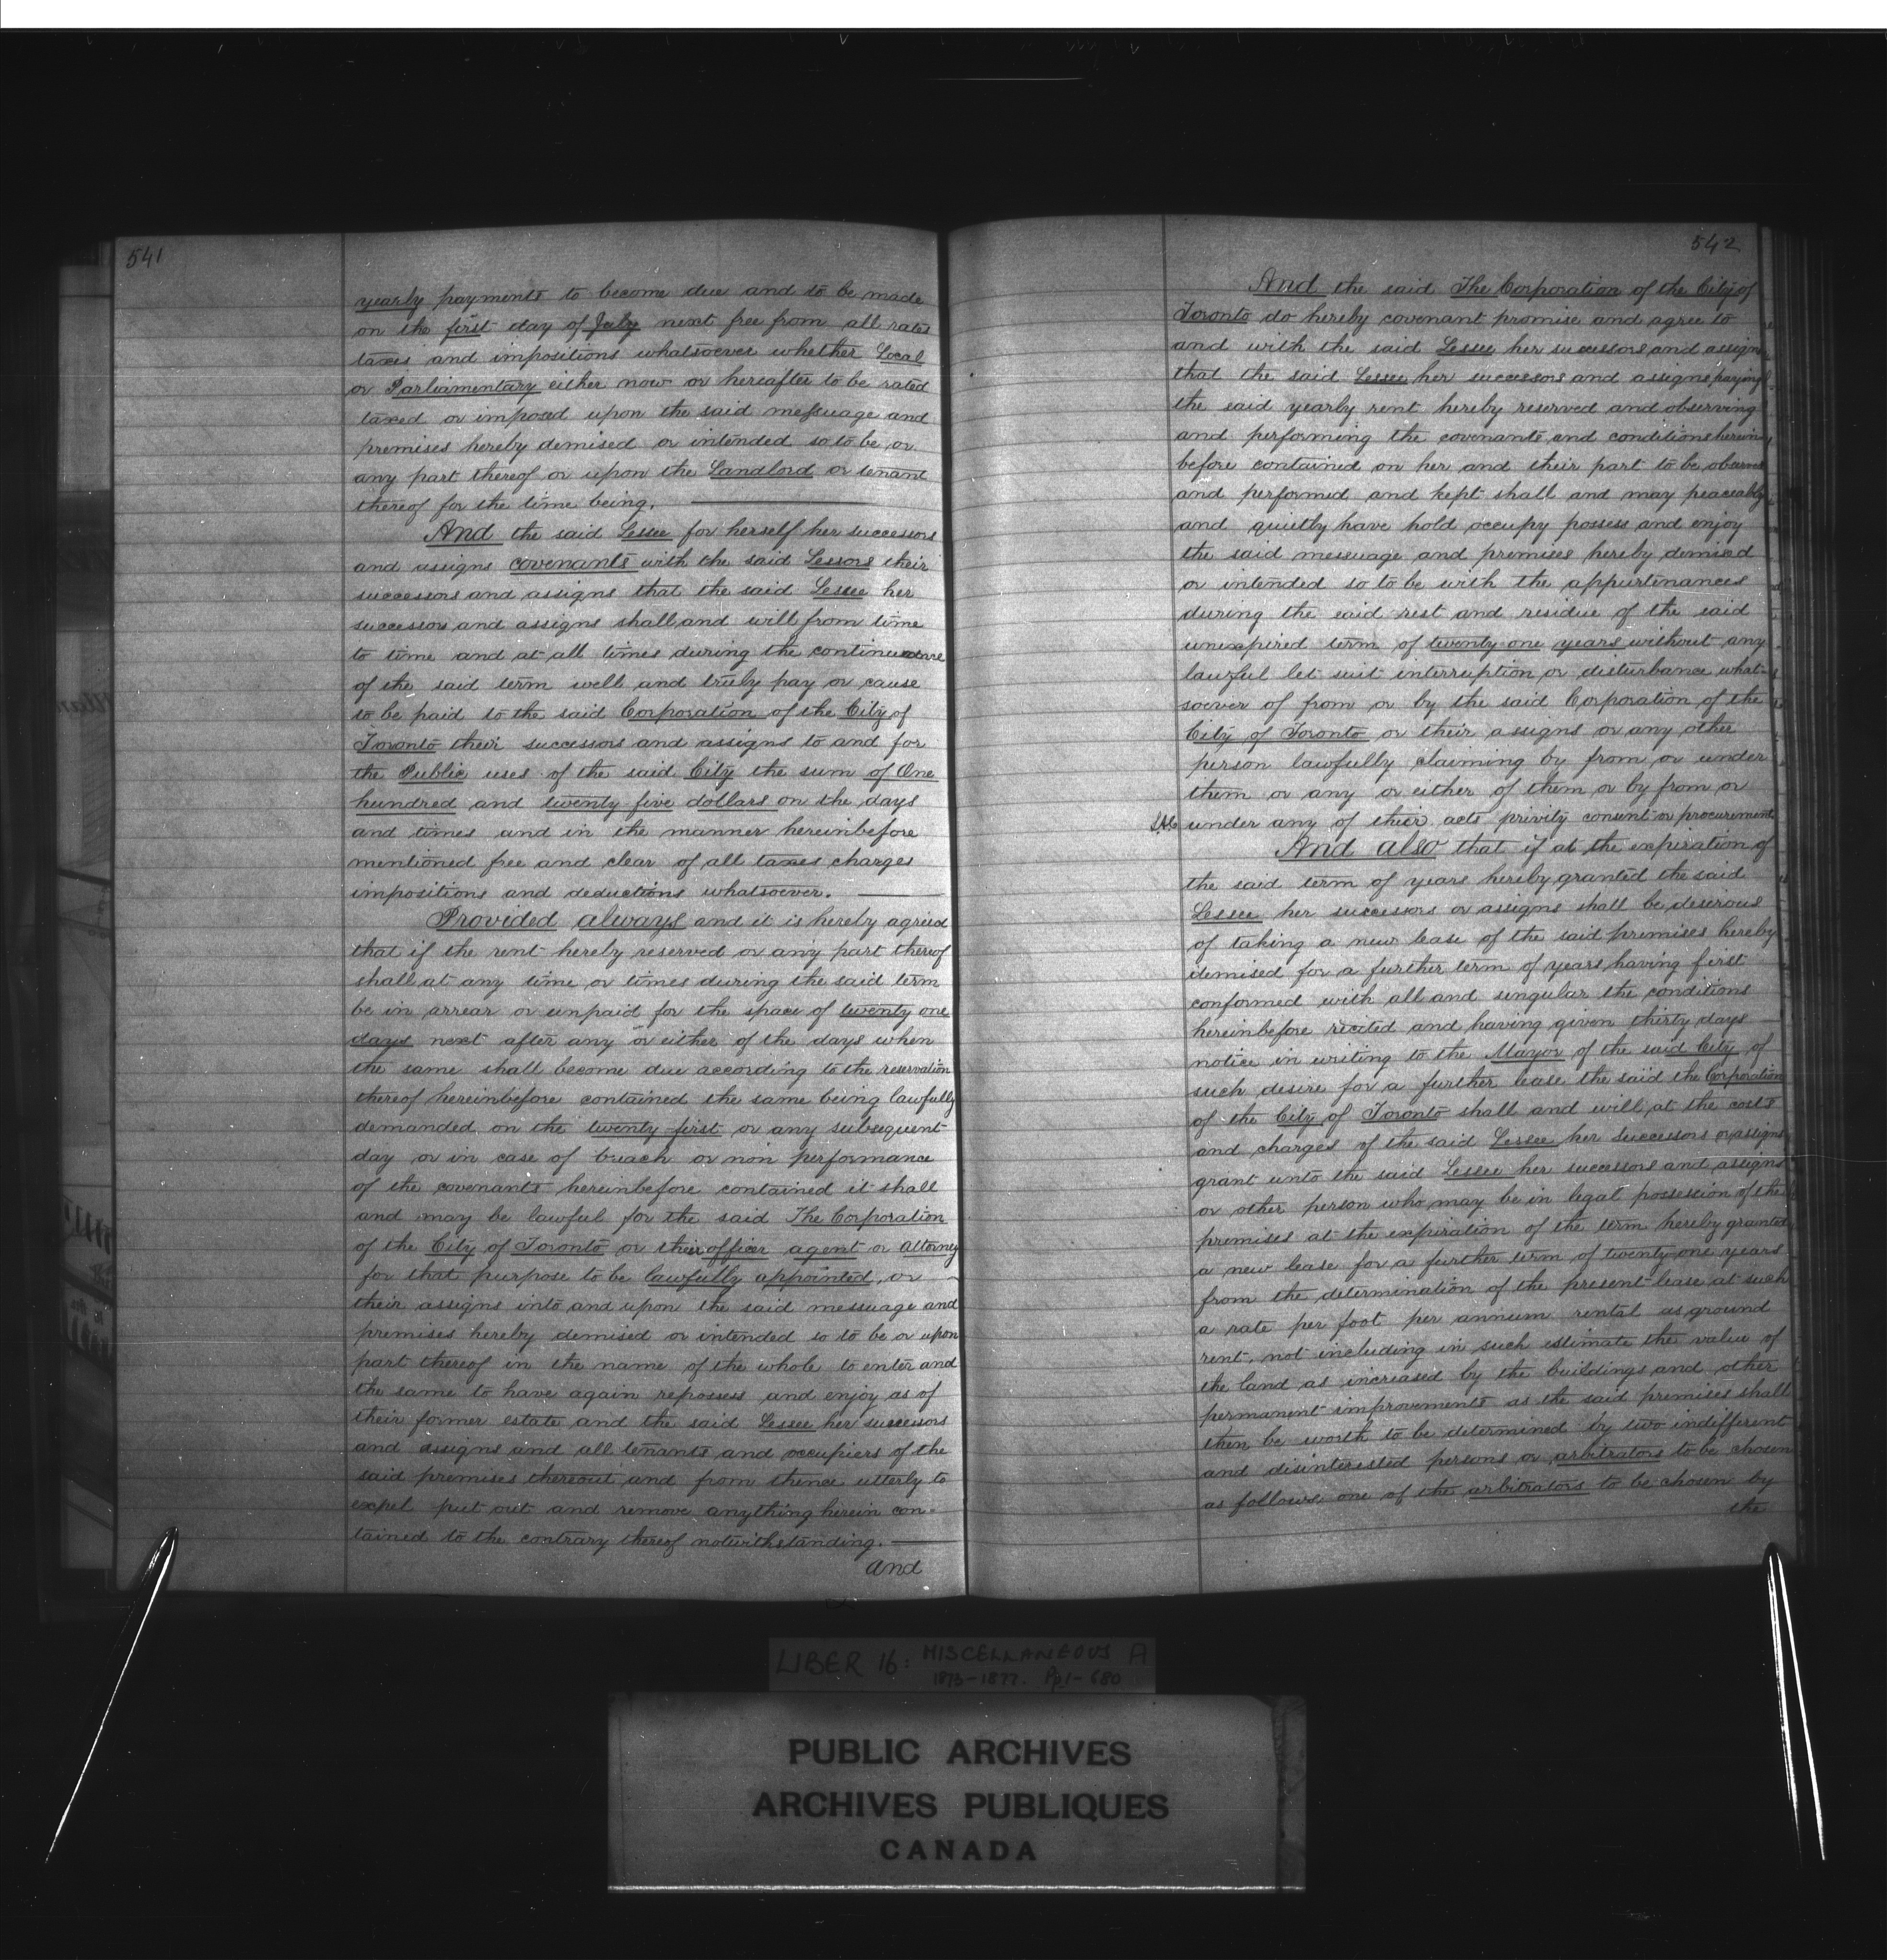 541
yearly payments to become due and to be made
on the first day of July next free from all rates
taxes and impositions whatsoever whether Local
or Parliamentary either now or hereafter to be rated
taxed or imposed upon the said messuage and
premises hereby demised or intended so to be or
any part thereof or upon the Landlord or tenant
thereof for the time being.
And the said Lessee for herself her successors
and assigns covenants with the said Lessors their
successors and assigns that the said Lessee her
successors and assigns shall and will from time
to time and at all times during the continuance
of the said term well and truly pay or cause
to be paid to the said Corporation of the City of
Toronto their successors and assigns to and for
the Public uses of the said City the sum of One
hundred and twenty five dollars on the days
and times and in the manner hereinbefore
mentioned free and clear of all taxes charges
impositions and deductions whatsoever.
Provided always and it is hereby agreed
that if the rent hereby reserved or any part thereof
shall at any time or times during the said term
be in arrear or unpaid for the space of twenty one
days next after any or either of the days when
the same shall become due according to the reservation
thereof hereinbefore contained the same being lawfully
demanded on the twenty first or any subsequent
day or in case of breach or non performance
of the covenants hereinbefore contained it shall
and may be lawful for the said The Corporation
of the City of Toronto or their officer agent or attorney
for that purpose to be lawfully appointed, or
their assigns into and upon the said messuage and
premises hereby demised or intended so to be or upon
part thereof in the name of the whole to enter and
the same to have again repossess and enjoy as of
their former estate and the said Lessee her successors
and assigns and all tenants and occupiers of the
said premises thereout and from thence utterly to
expel put out and remove anything herein con-
tained to the contrary thereof notwithstanding.
And
542
And the said The Corporation of the City of
Toronto do hereby covenant promise and agree to
and with the said Lessee her successors and assigns
that the said Lessee her successors and assigns paying
the said yearly rent hereby reserved and observing
and performing the covenants and conditions herein
before contained on her and their part to be observed
and performed and kept shall and may peaceably
and quietly have hold occupy possess and enjoy
the said messuage and premises hereby demised
or intended so to be with the appurtenances
during the said rest and residue of the said
unexpired term of twenty one years without any
lawful let suit interruption or disturbance what-
soever of from or by the said Corporation of the
City of Toronto or their assigns or any other
person lawfully claiming by from or under
them or any or either of them or by from or
under any of their acts privity consent or procurement
And also that if at the expiration of
the said term of years hereby granted the said
Lessee her successors or assigns shall be desirous
of taking a new lease of the said premises hereby
demised for a further term of years having first
conformed with all and singular the conditions
hereinbefore recited and having given thirty days
notice in writing to the Mayor of the said City of
such desire for a further lease the said the Corporation
of the City of Toronto shall and will at the costs
and charges of the said Lessee her successors or assigns
grant unto the said Lessee her successors and assigns
or other person who may be in legal possession of the
premises at the expiration of the term hereby granted
a new lease for a further term of twenty one years
from the determination of the present lease at such
a rate per foot per annum rental as ground
rent, not including in such estimate the value of
the land as increased by the buildings and other
permanent improvements as the said premises shall
then be worth to be determined by two indifferent
and disinterested persons or arbitrators to be chosen
as follows one of the arbitrators to be chosen by
the
LIBER 16: MISCELLANEOUS A
1873-1877. Pp 1-680
PUBLIC ARCHIVES
ARCHIVES PUBLIQUES
CANADA